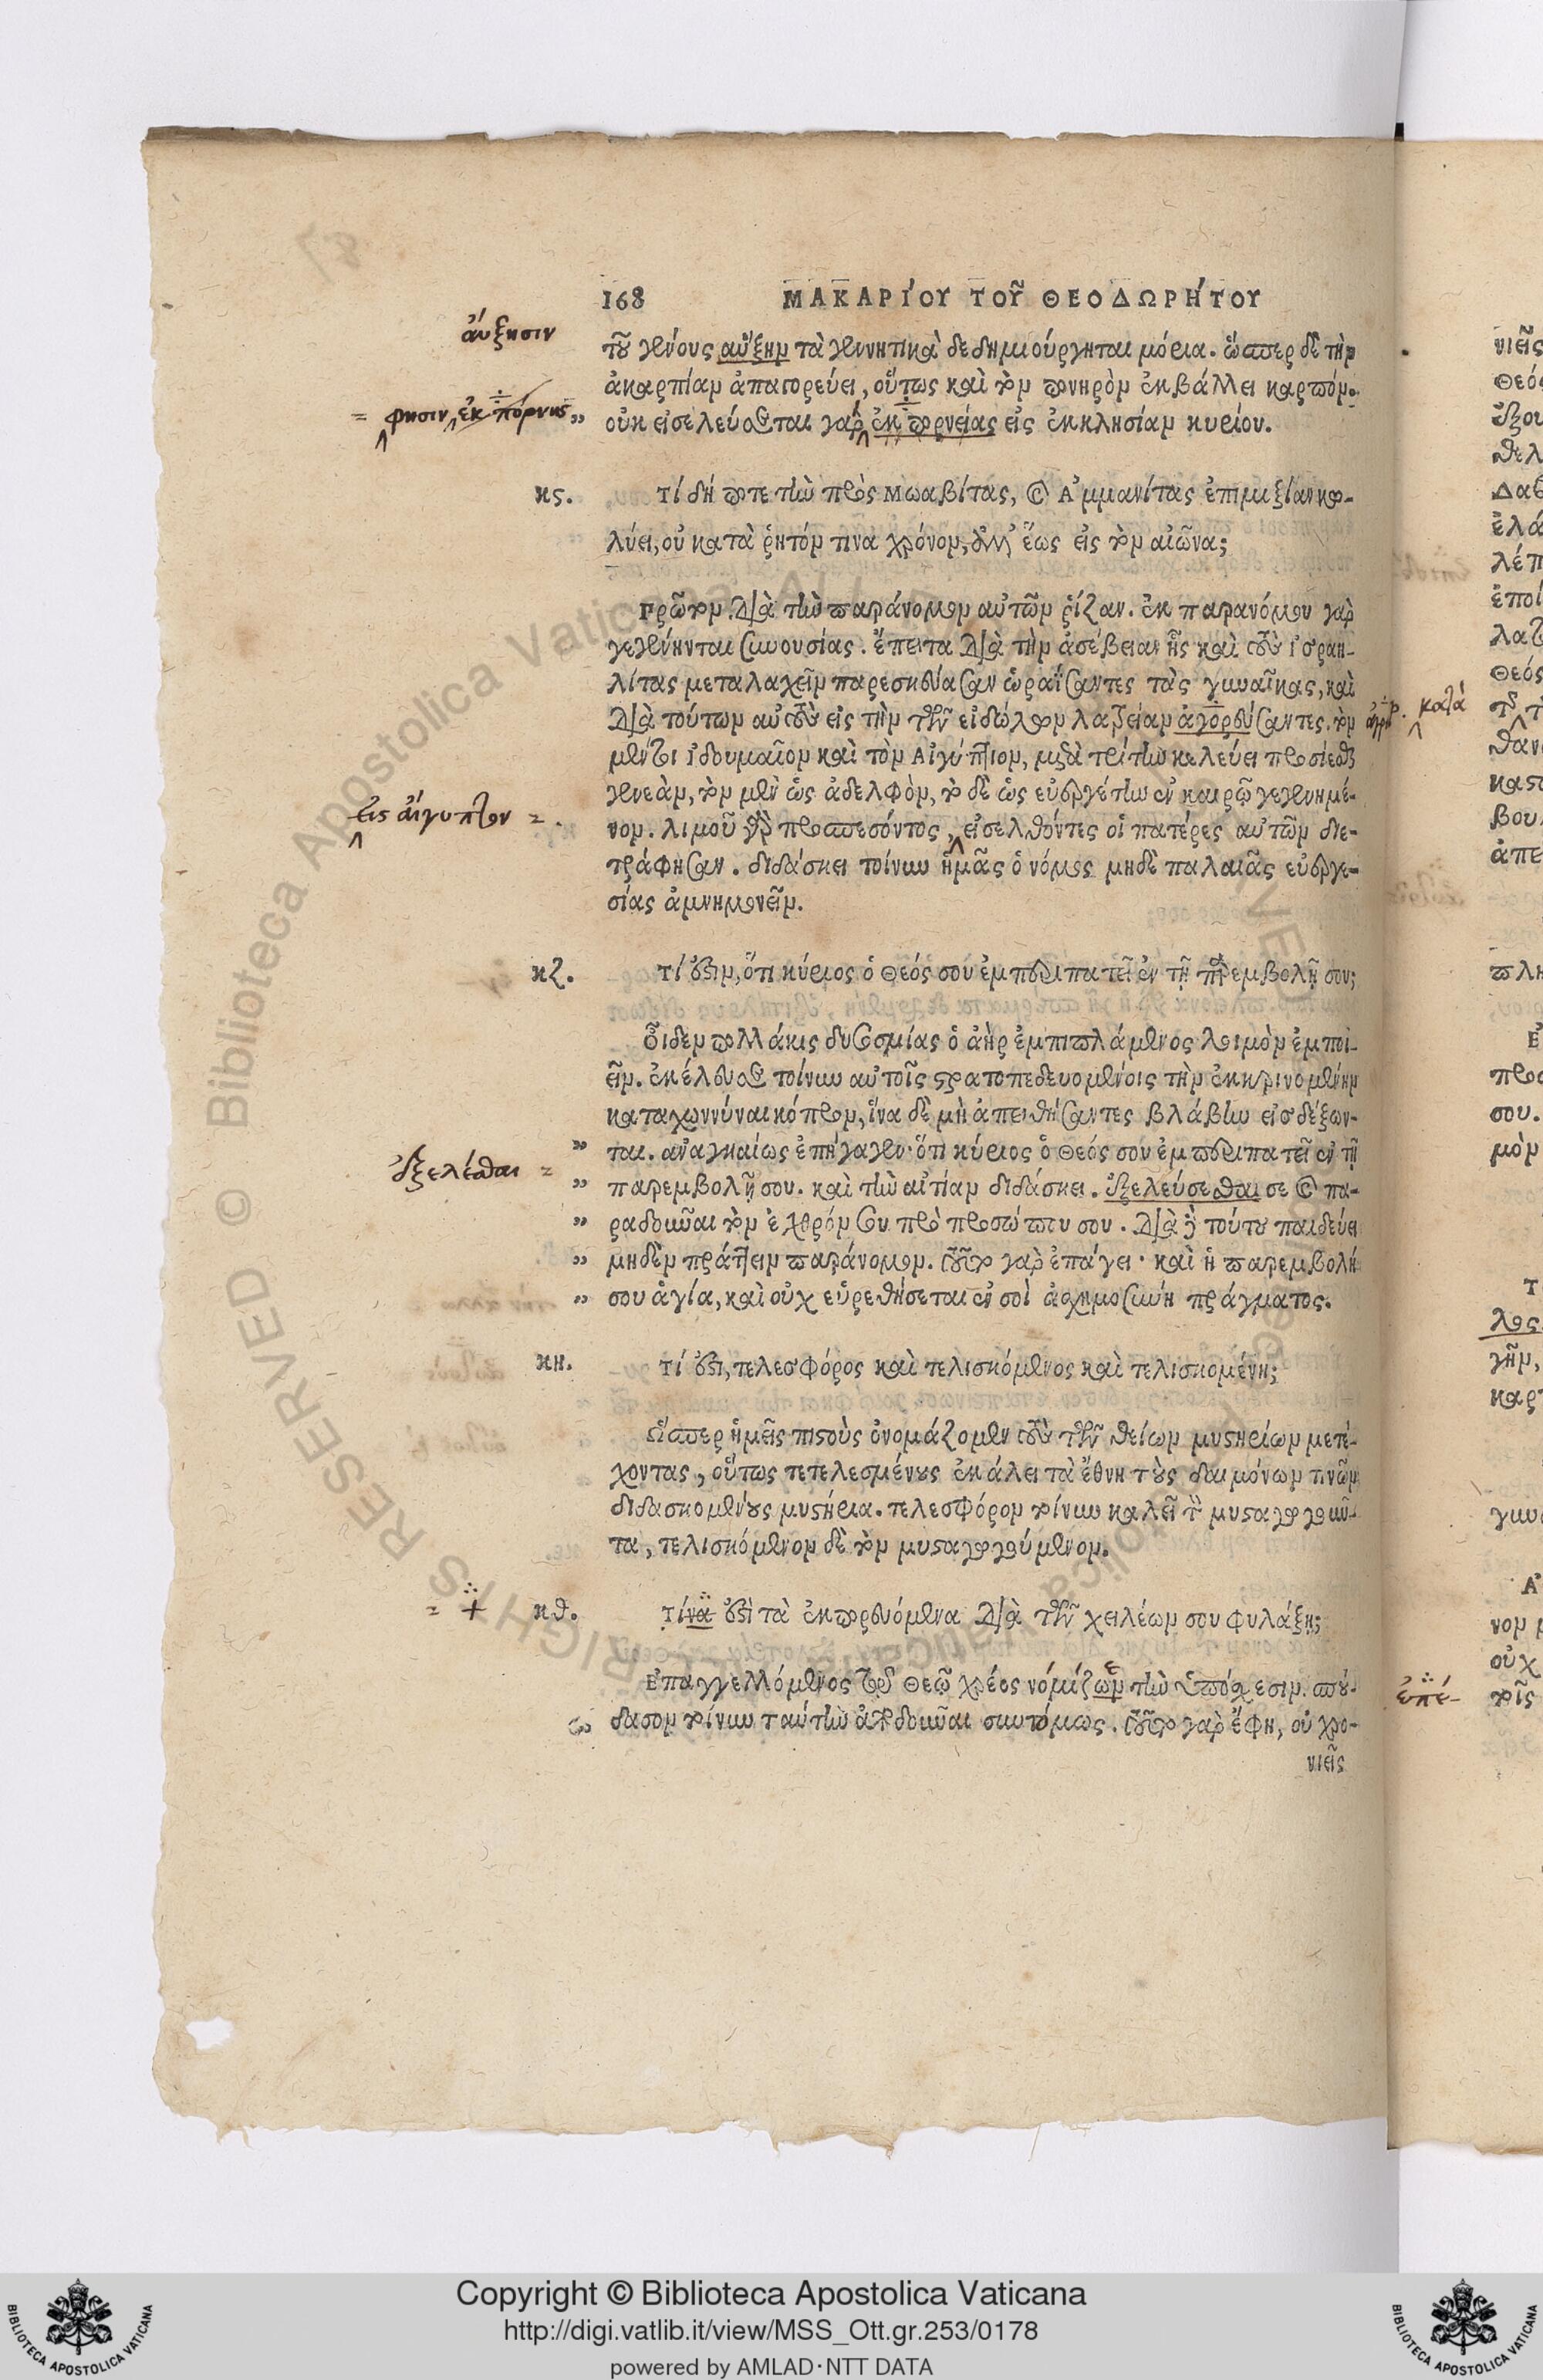 168 ΜΑΚΑΡΊΟΥ ΤΟΥ͂ ΘΕΟΔΩΡΉΤΟΥ
ἀύξησιν
τοῦ γένους αὔξην τὰ γεννητικὰ δεδημιούργηται μόρια. ὥσπερ δὲ τὴν
ἀκαρπίαν ἀπαγορεύει, οὕτως καὶ τὸν πονηρὸν ἐκβάλλει καρπόν.
= φησιν, ἐκ πόρνης
„ οὐκ εἰσελεύσεται γὰρ ἐκ πορνείας εἰς ἐκκλησίαν κυρίου.
κϛ. Τί δή ποτε τὴν πρὸς Μωαβίτας, καὶ Ἀμμανίτας ἐπιμιξίαν κω-
λύει, οὐ κατὰ ῥητόν τινα χρόνον, ἀλλ' ἕως εἰς τὸν αἰῶνα;
Πρῶτον. διὰ τὴν παράνομον αὐτῶν ῥίζαν. ἐκ παρανόμου γὰρ
γεγένηνται συνουσίας. ἔπειτα διὰ τὴν ἀσέβειαν ἧς καὶ τοὺς Ἰσραη-
λίτας μεταλαχεῖν παρεσκεύασαν ὡραΐσαντες τὰς γυναῖκας, καὶ
διὰ τούτων αὐτοὺς εἰς τὴν τῶν εἰδώλων λατρείαν ἀγορεύσαντες. τὸν
μέντοι Ἰδουμαῖον καὶ τὸν Αἰγύπτιον, μετὰ τρίτην κελεύει προσίεσθαι
γενεὰν, τὸν μὲν ὡς ἀδελφὸν, τὸν δὲ ὡς εὐεργέτην ἐν καιρῷ γεγενημέ-
εἰς ἀίγυπτον =.
νον. λιμοῦ γὰρ προσπεσόντος, εἰσελθόντες οἱ πατέρες αὐτῶν διε-
τράφησαν. διδάσκει τοίνυν ἡμᾶς ὁ νόμος μηδὲ παλαιᾶς εὐεργε-
σίας ἀμνημονεῖν.
κζ. Τί ἐστιν, ὅτι κύριος ὁ Θεός σου ἐμπεριπατεῖ ἐν τῇ παρεμβολῇ σου;
Οἶδεν πολλάκις δυσοσμίας ὁ ἀὴρ ἐμπιπλάμενος λοιμὸν ἐμποι-
εῖν. ἐκέλευσε τοίνυν αὐτοῖς στρατοπεδευομένοις τὴν ἐκκρινομένην
καταχωννύναι κόπρον, ἵνα δὲ μὴ ἀπειθήσαντες βλάβην εἰσδέξων-
„ ται. ἀναγκαίως ἐπήγαγεν· ὅτι κύριος ὁ Θεός σου ἐμπεριπατεῖ ἐν τῇ
ἐξελέσθαι =
„ παρεμβολῇ σου. καὶ τὴν αἰτίαν διδάσκει. ἐξελεύσεσθαι σε καὶ πα-
„ ραδοῦναι τὸν ἐχθρόν σου πρὸ προσώπου σου. διὰ δὲ τούτου παιδεύει
„ μηδὲν πράττειν παράνομον. τοῦτο γὰρ ἐπάγει· καὶ ἡ παρεμβολή
„ σου ἁγία, καὶ οὐχ εὑρεθήσεται ἐν σοὶ ἀσχημοσύνη πράγματος.
κη. Τί ἐστι, τελεσφόρος καὶ τελισκόμενος καὶ τελισκομένη;
Ὥσπερ ἡμεῖς πιστοὺς ὀνομάζομεν τοὺς τῶν θείων μυστηρίων μετέ-
χοντας, οὕτως τετελεσμένους ἐκάλει τὰ ἔθνη τοὺς δαιμόνων τινῶν
διδασκομένους μυστήρια. τελεσφόρον τοίνυν καλεῖ τὸν μυσταγωγοῦν-
τα, τελισκόμενον δὲ τὸν μυσταγωγούμενον.
= + κθ. Τίνα ἐστὶ τὰ ἐκπορευόμενα διὰ τῶν χειλέων σου φυλάξῃ;
Ἐπαγγελλόμενος τῷ Θεῷ χρέος νόμιζων τὴν ὑπόσχεσιν. σπού-
δασον τοίνυν ταύτην ἀποδοῦναι συντόμως. τοῦτο γὰρ ἔφη, οὐ χρο-
νιεῖς
κατά
ἐπέ-
νιεῖς